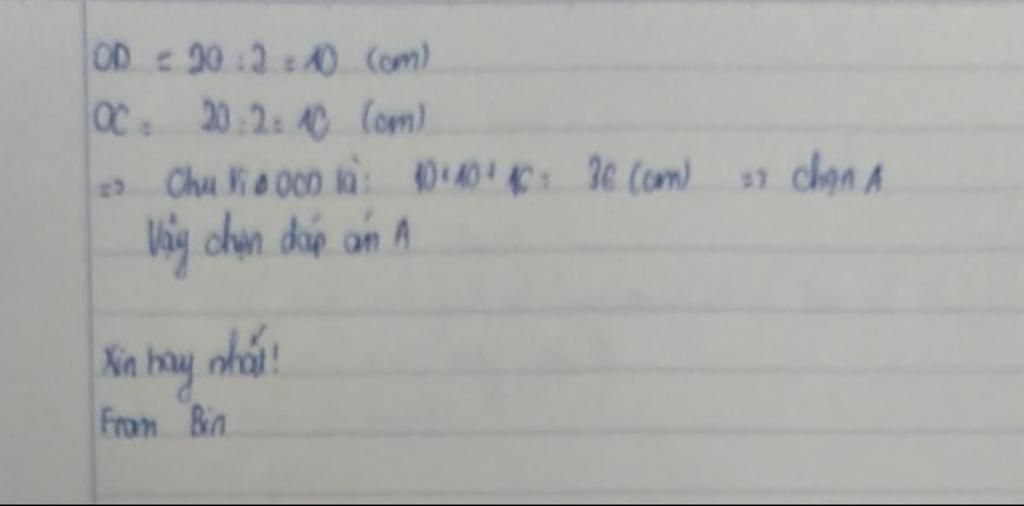 OD = 20 : 2 = 10 (cm)
OC = 20 : 2 = 10 (cm)
=> Chu vi Δ OCD là: 10 + 10 + 16 = 36 (cm) => chọn A
Vậy chọn đáp án A
Xin hay nhất!
From Bin